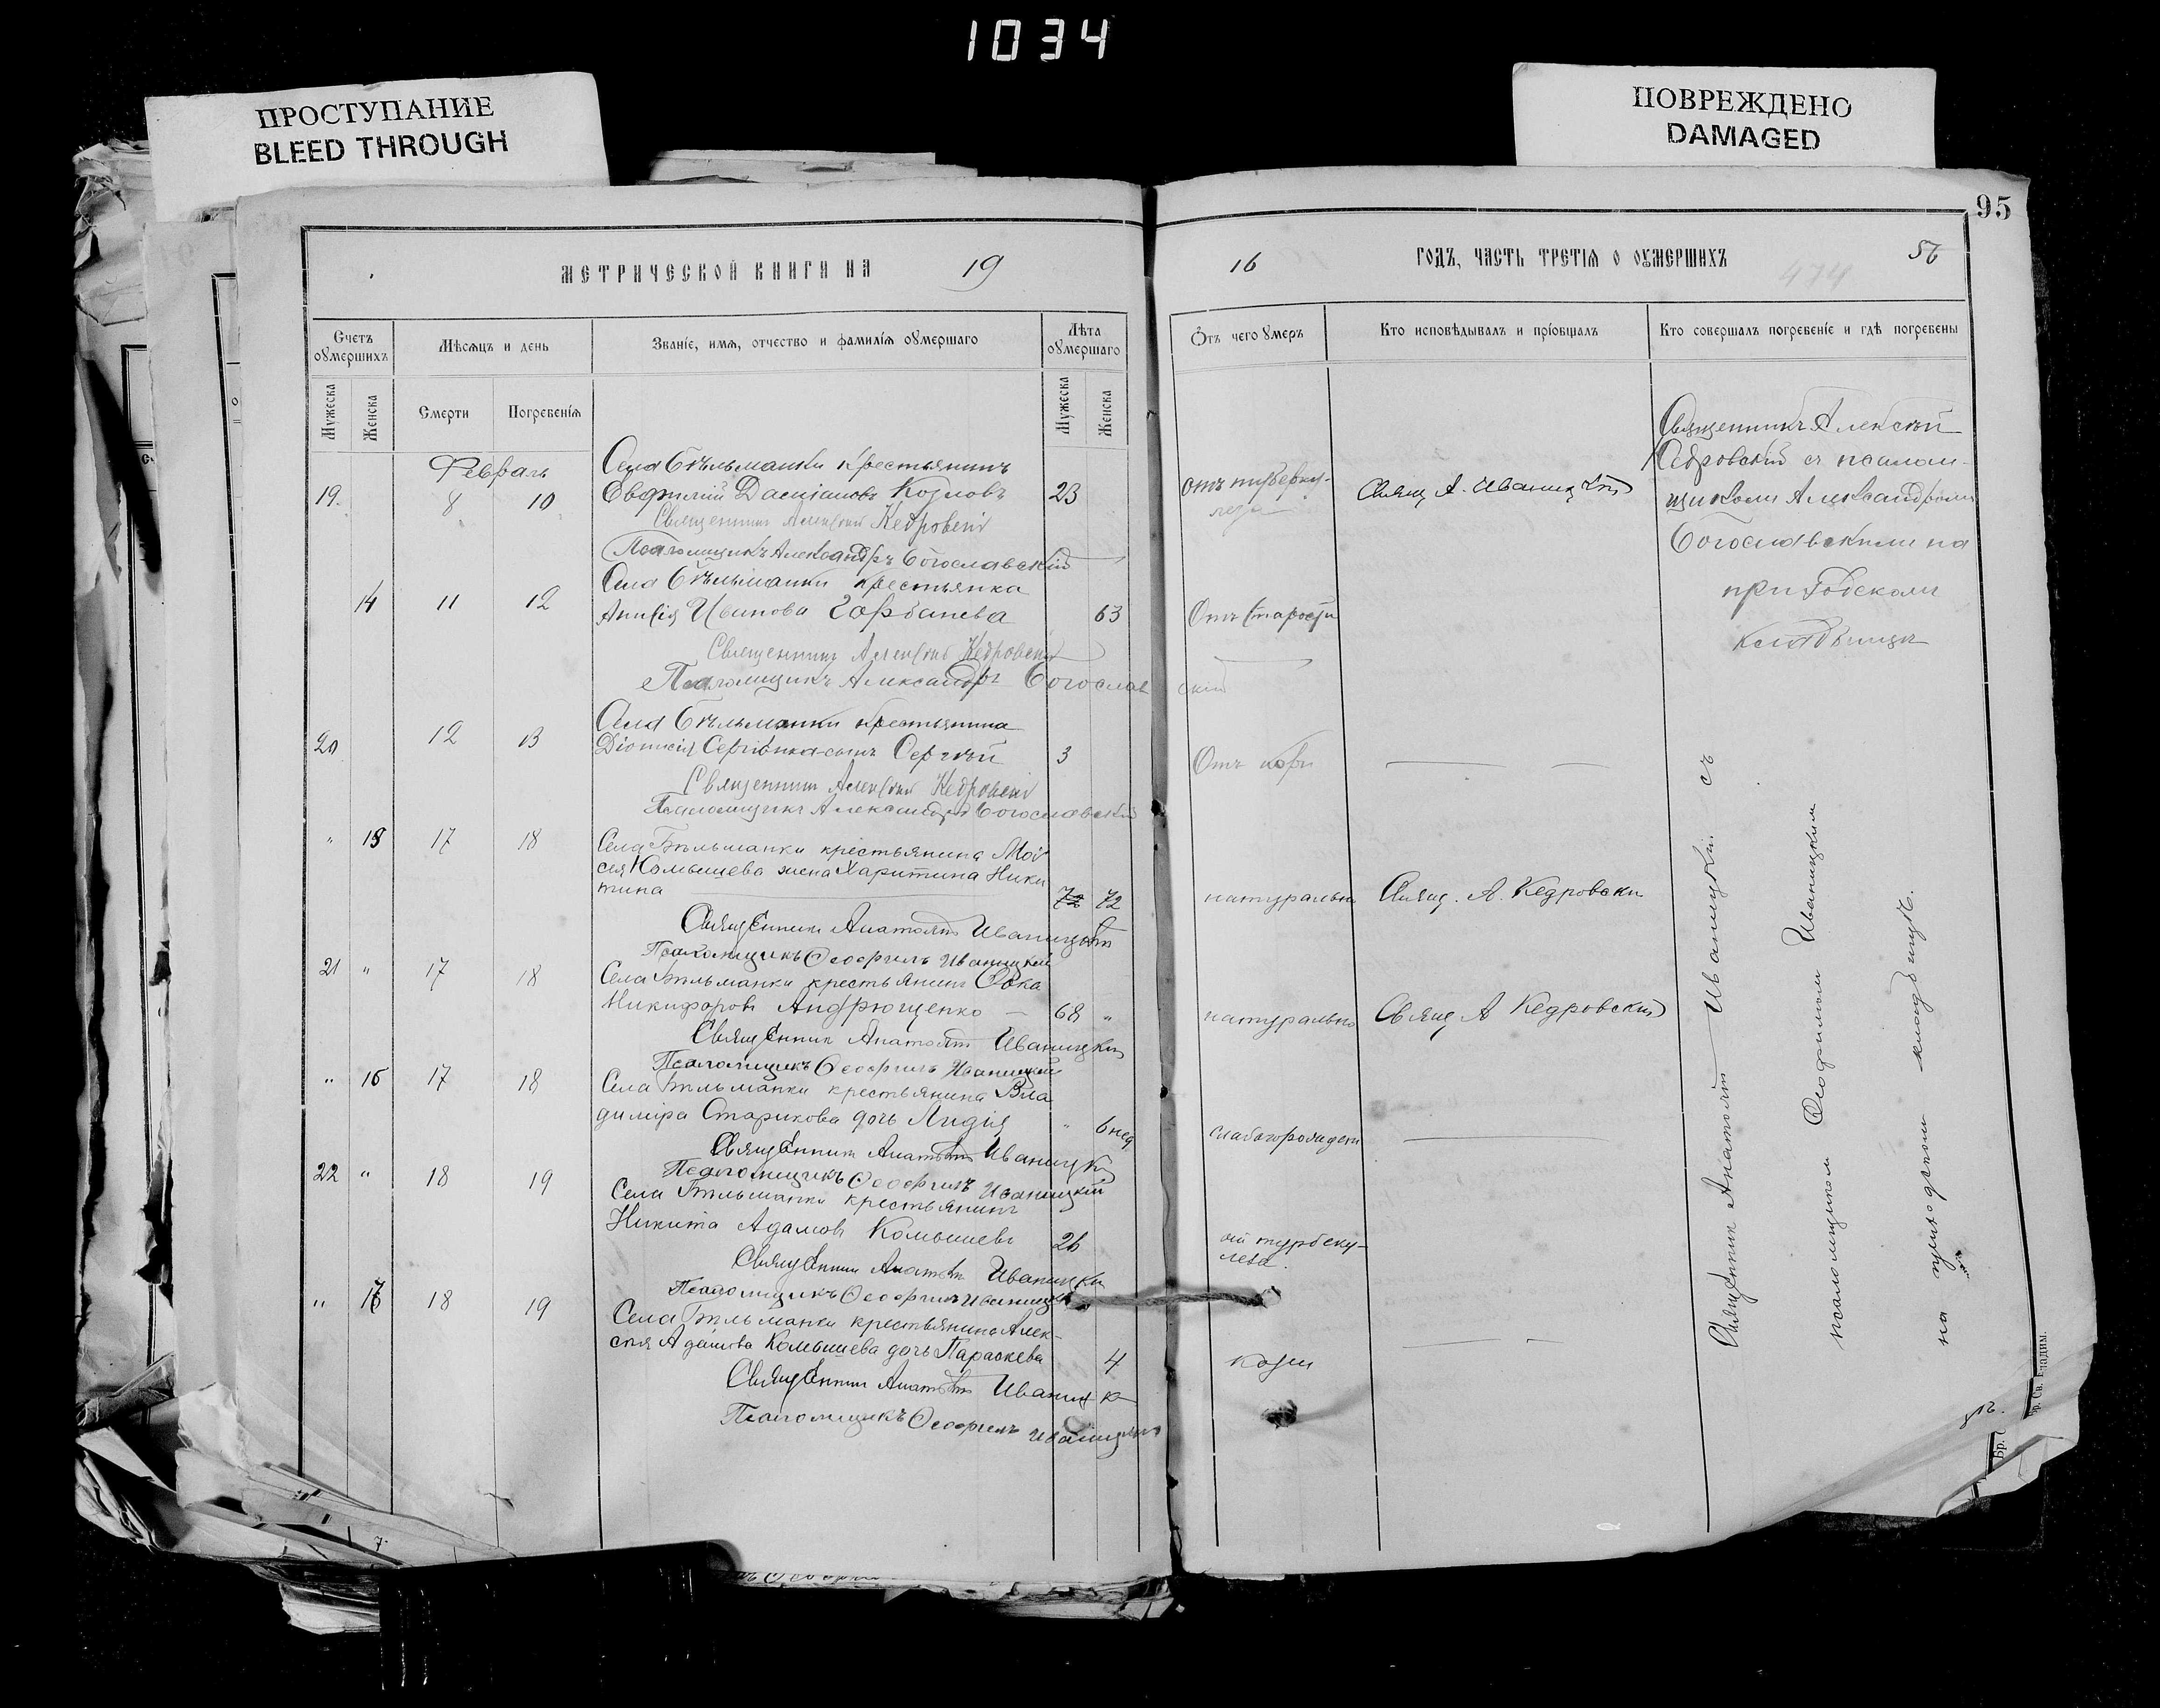 1034
ПРОСТУПАНИЕ
BLEED THROUGH
ПОВРЕЖДЕНО
DAMAGED
95
МЕТРИЧЕСКОЙ КНИГИ НА 19
16 ГОДЪ, ЧАСТЬ ТРЕТІѦ О ОУМЕРШИХЪ 56
474
Счетъ оумершихъ
Мѣсѧцъ и день
Званіе, имѧ, отчество и фамилія оумершаго
Лѣта оумершаго
Ѿтъ чего оумеръ
Кто исповѣдывалъ и пріобщалъ
Кто совершалъ погребеніе и гдѣ погребены
Мужеска
Женска
Смерти
Погребеніѧ
Мужеска
Женска
Февраль
Села Бѣльманки крестьянинъ
19. 8 10 Даміановъ Козловъ 23
отъ туберку-
леза
Свящ А. Иваницкій
Священникъ Алексѣй Кедровскій
Псаломщикъ Александръ Богославскій
Села Бѣльманки крестьянка
14 11 12 Иванова Горбанева 63 Отъ старости
Священникъ Алексѣй Кедровскій
Псаломщикъ Александръ Богославскій
Села Бѣльманки крестьянина
20 12 13 Діонисія сынъ Сергѣй 3 Отъ кори
Священникъ Алексѣй Кедровскій
Псаломщикъ Александръ Богославскій
" 15 17 18 Села Бѣльманки крестьянина Мои
сея Комышева жена Харитина Ники
тина 72 72 натурально Свящ. А. Кедровски
Священникъ Анатолій Иваницкій
Псаломщикъ Ѳеофилъ Иваницкій
21 " 17 18 Села Бѣльманки крестьянинъ Ѳока
Никифоровъ Андрющенко — 68 " натурально Свящ А Кедровскій
Священникъ Анатолій Иваницкій
Псаломщикъ Ѳеофилъ Иваницкій
" 16 17 18 Села Бѣльманки крестьянина Вла
диміра Старикова дочь Лидія " 6 нед
Священникъ Анатолій Иваницкій
Псаломщикъ Ѳеофилъ Иваницкій
22 " 18 19 Села Бѣльманки крестьянинъ
Никита Адамовъ Комышевъ 26 от турбеку-
леза.
Священникъ Анатолій Иваницки
Псаломщикъ Ѳеофилъ Иваницкій
" 17 18 19 Села Бѣльманки крестьянина Алек-
сѣя Адамова Комышева дочь Параскева 4
Священникъ Анатолій Иваницк
Псаломщикъ Ѳеофилъ Иваницкій
Священникъ Алексѣй
Кедровскій съ псалом-
щикомъ Александромъ
Богославскимъ на
приходскомъ
кладбищѣ
Священникъ Анатолій Иваницкій съ
псаломщикомъ Ѳеофиломъ Иваницкимъ
на приходскомъ кладбищѣ.
Бр. Св. Владим.